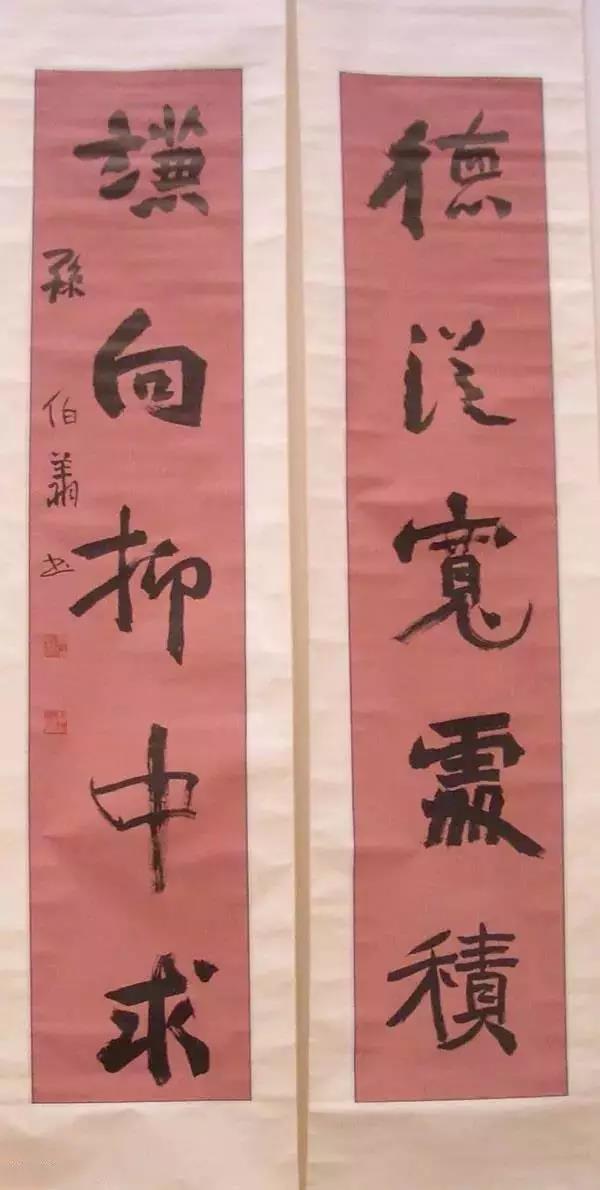 德從寬處積
謙向抑中求
孫伯翔書